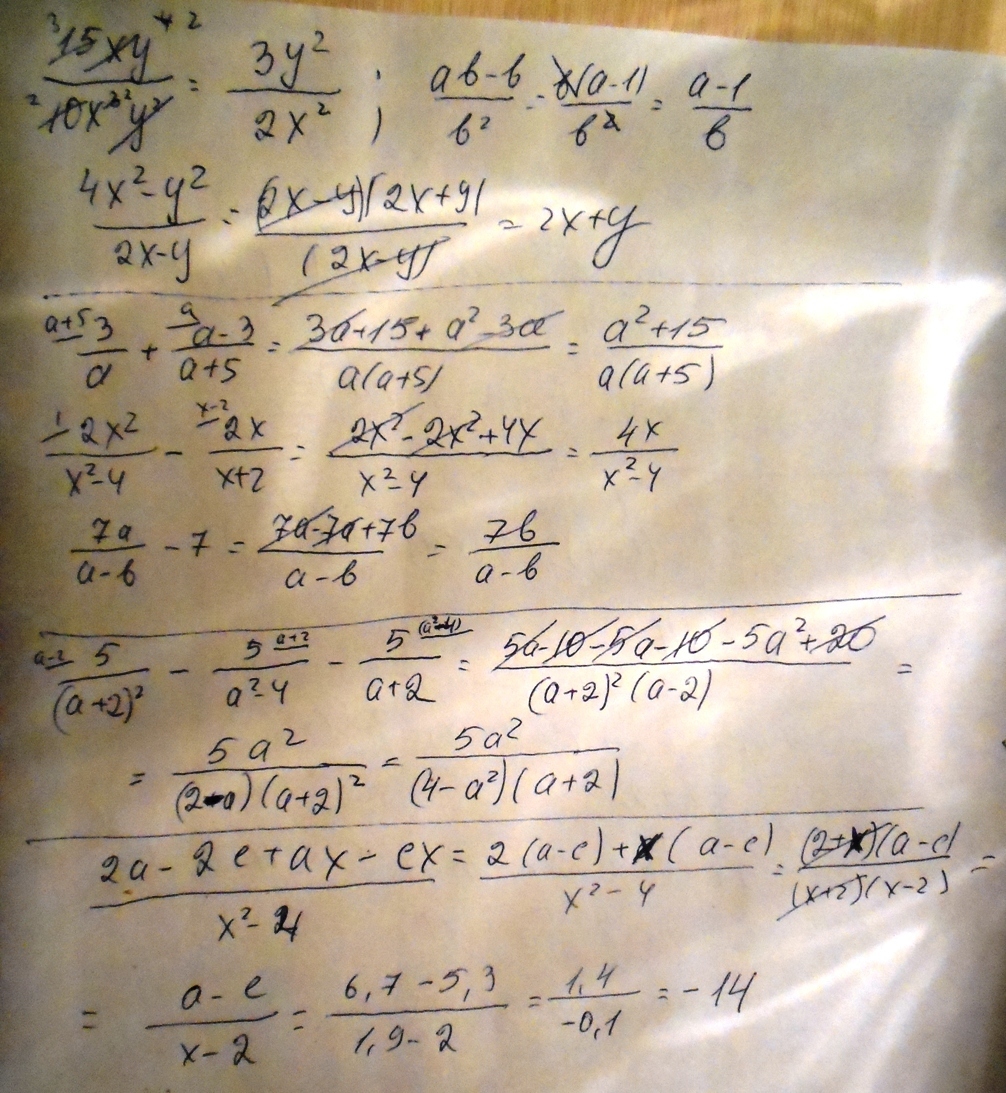 15xy⁴/10x³y² = 3y²/2x² ; ab-b/b² = b(a-1)/b² = a-1/b
4x²-y²/2x-y = (2x-y)(2x+y)/(2x-y) = 2x+y
a+5 3/a + a a-3/a+5 = 3a+15+a²-3a/a(a+5) = a²+15/a(a+5)
1 2x²/x²-4 - x-2 2x/x+2 = 2x²-2x²+4x/x²-4 = 4x/x²-4
7a/a-b - 7 = 7a-7a+7b/a-b = 7b/a-b
a-2 5/(a+2)² - 5 a+2/a²-4 - 5 (a²-4)/a+2 = 5a-10-5a-10-5a²+20/(a+2)²(a-2) =
= 5a²/(2-a)(a+2)² = 5a²/(4-a²)(a+2)
2a-2c+ax-cx/x²-4 = 2(a-c)+x(a-c)/x²-4 = (2+x)(a-c)/(x+2)(x-2) =
= a-c/x-2 = 6,7-5,3/1,9-2 = 1,4/-0,1 = -14